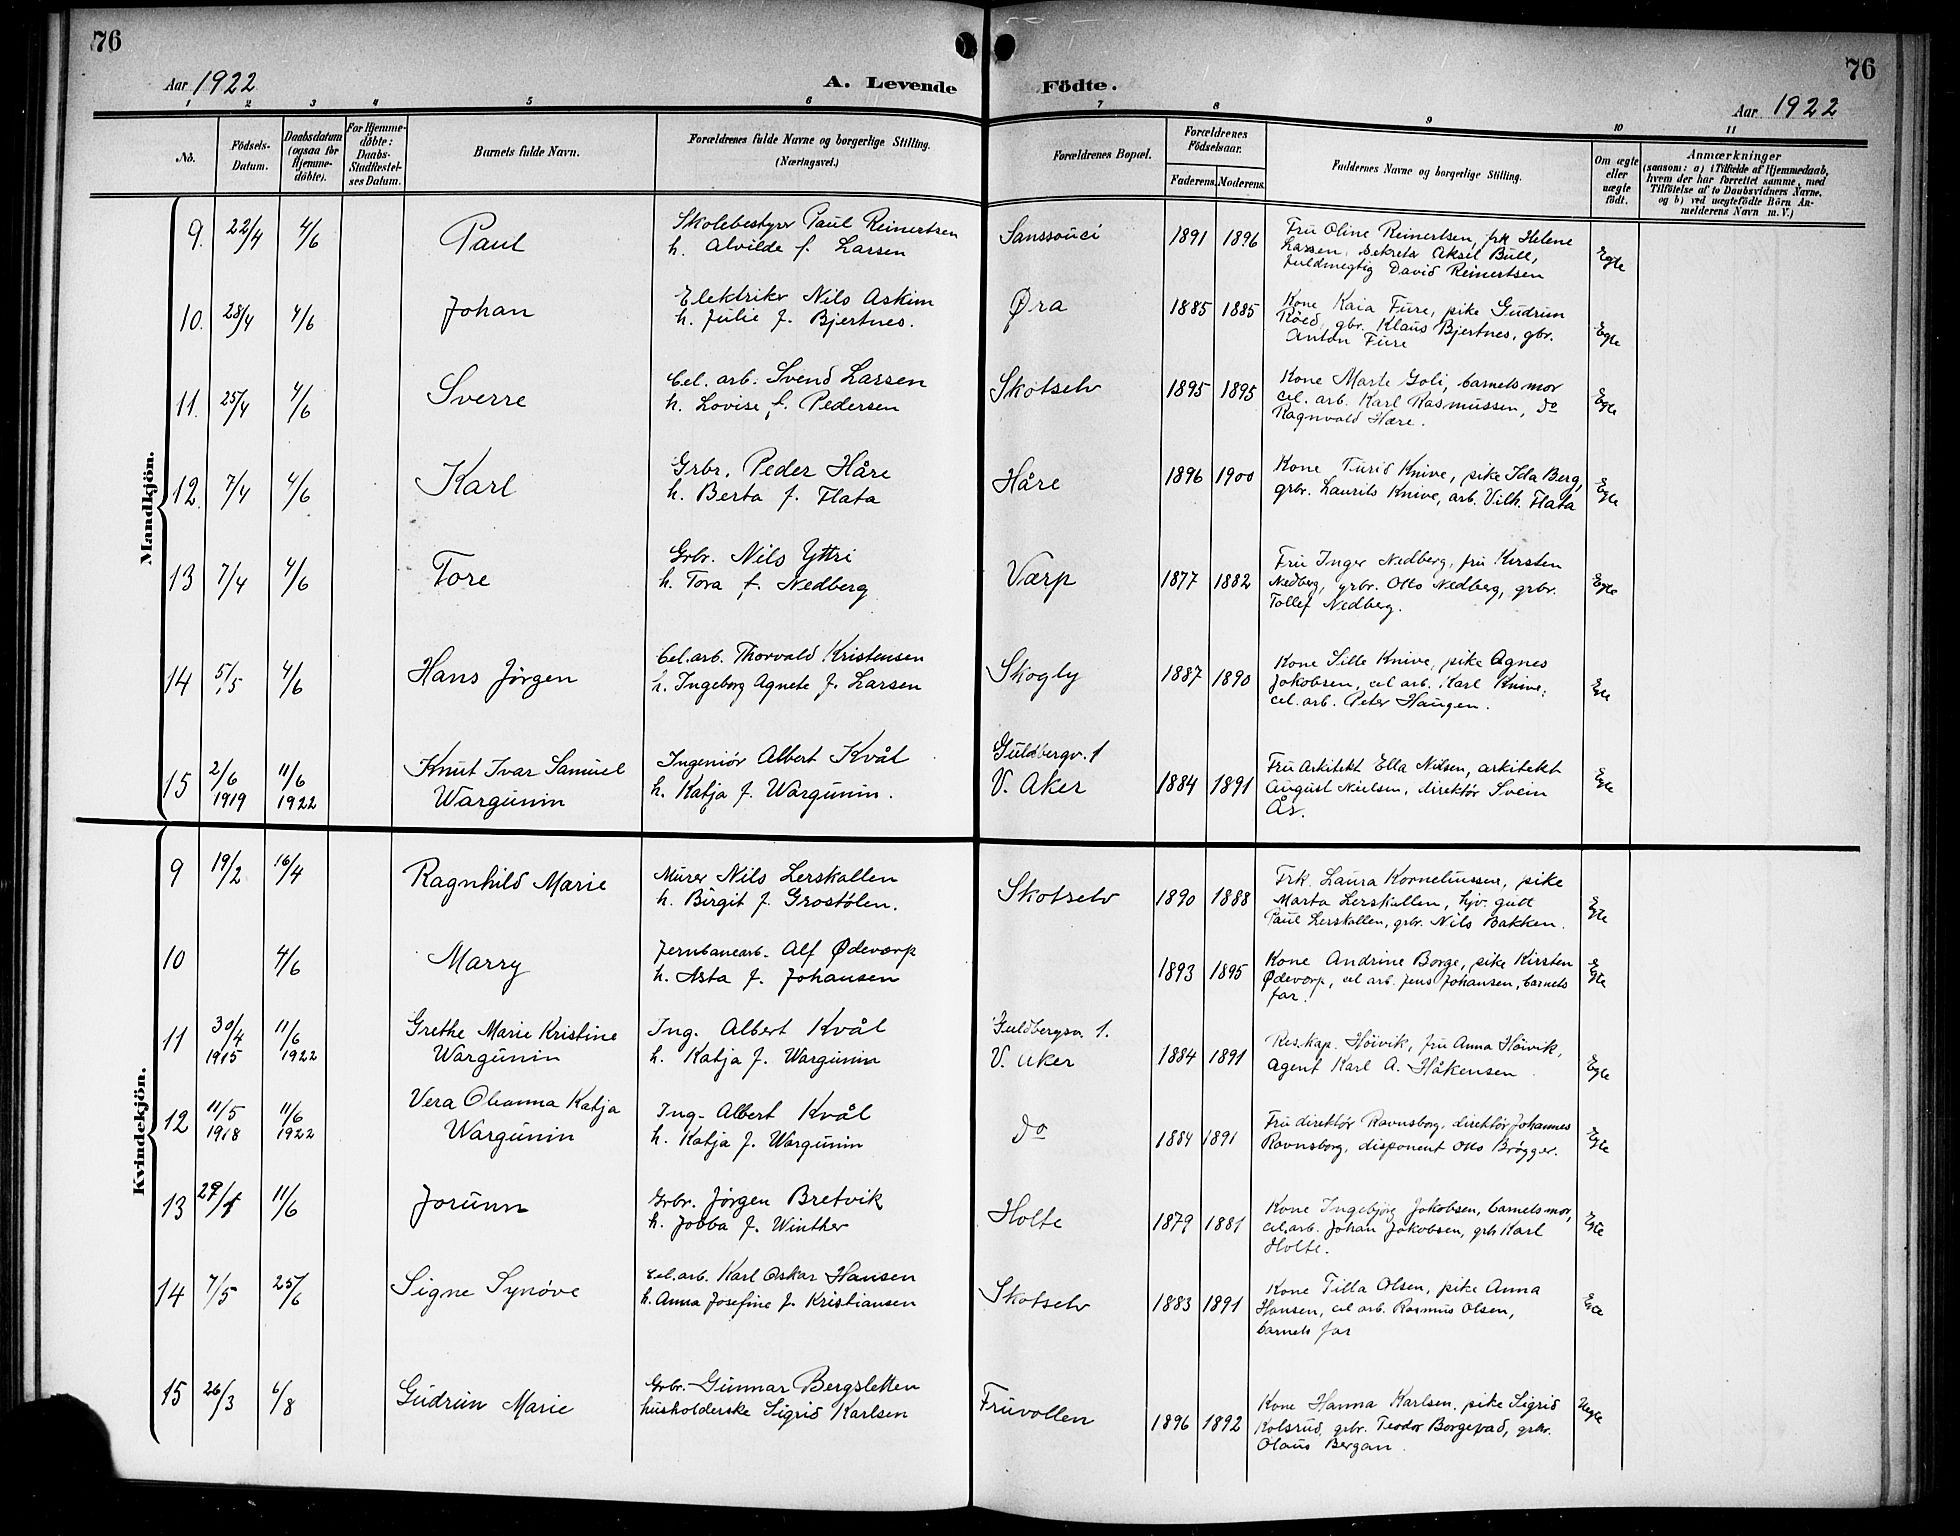 76
76
Aar 1922
A. Levende
Födte.
Aar 1922
1 2 3 4 5 6 7 8 9 10 11
No.
Födsels-
Datum.
Daabsdatum
(ogsaa for
Hjemme-
döbte).
For Hjemme-
döbte:
Daabs-
Stadfæstel-
ses Datum.
Barnets fulde Navn.
Forældrenes fulde Navne og borgerlige Stilling.
(Næringsvei.)
Forældrenes Bopæl.
Forældrenes
Födselsaar.
Faderens. Moderens.
Faddernes Navne og borgerlige Stilling.
Om ægte
eller
uægte
födt.
Anmærkninger
(saasom: a) i Tilfælde af Hjemmedaab,
hvem der har forrettet samme, med
Tilföielse af to Daabsvidners Navne,
og b) ved uægtefödte Börn An-
melderens Navn m. V.)
Mandkjön.
9. 22/4 4/6 Paul
Skolebestyrer Paul Reinertsen
h. Alvilde f. Larsen
Sanssouci 1891 1896
Fru Oline Reinertsen, frk Helene
Larsen, Sekretær Aksel Bull,
fuldmegtig David Reinertsen
Egte
10. 28/4 4/6 Johan
Elektriker Nils Askim
h. Julie f. Bjertnes.
Øra 1885 1885
Kone Kaia Fure, pike Gudrun
Röed, gbr. Klaus Bjertnes, gbr.
Anton Fure
Egte
11. 25/4 4/6 Sverre
Cel. arb. Svend Larsen
h. Lovise f. Pedersen
Skotselv 1895 1895
Kone Marte Goli, barnets mor
cel. arb. Karl Rasmussen, do
Ragnvald Hære.
Egte
12. 7/4 4/6 Karl
Grbr. Peder Håre
h. Berta f. Flata
Håre 1896 1900
Kone Turid Knive, pike Ida Berg,
grbr. Laurits Knive, arb. Vilh. Flata
Egte
13 7/4 4/6 Tore
Grbr. Nils Yttri
h. Tora f. Nedberg
Værp 1877 1882
Fru Inger Nedberg, fru Kirsten
Nedberg, grbr. Otto Nedberg, grbr.
Tollef Nedberg.
Egte
14 5/5 4/6 Hans Jörgen
Cel. arb. Thorvald Kristensen
h. Ingeborg Agnete f. Larsen
Skogly 1887 1890
Kone Sille Knive, pike Agnes
Jakobsen, cel arb. Karl Knive,
cel. arb. Peter Haugen.
Egte
15 2/6 1919 11/6 1922 Knut Ivar Samuel
Wargunin
Ingeniör Albert Kvål
h. Katja f. Wargunin.
Guldbergv. 1
V. Aker 1884 1891
Fru Arkitekt Ella Nilsen, arkitekt
August Nielsen, direktör Svein
År.
Egte
Kvindekjön.
9 19/2 16/4 Ragnhild Marie
Murer Nils Lerskallen
h. Birgit f. Grostölen.
Skotselv 1890 1888
Frk. Laura Korneliussen, pike
Marta Lerskallen, hjv. gutt
Paul Lerskallen, grbr. Nils Bakken.
Egte
10 4/6 Marry
Jernbanearb. Alf Ødeværp
h. Asta f. Johansen
1893 1895
Kone Andrine Borge, pike Kirsten
Ødeværp, cel arb. Jens Johansen, barnets
far.
Egte
11 30/4 1915 11/6 1922 Grethe Marie Kristine
Wargunin
Ing. Albert Kvål
h. Katja f. Wargunin
Guldbergsv. 1.
V. Aker 1884 1891
Res.kap. Höivik, fru Anna Höivik,
agent Karl A. Håkensen
Egte
12 11/5 1918 11/6 1922 Vera Oleanna Katja
Wargunin
Ing. Albert Kvål
h. Katja f. Wargunin
do 1884 1891
Fru direktör Ravnsborg, direktör Johannes
Ravnsborg, disponent Otto Brögger.
Egte
13 11/6 Jorunn
Grbr. Jörgen Bretvik
h. Jobba f. Winther
Holte 1879 1881
Kone Ingebjörg Jakobsen, barnets mor,
cel. arb. Johan Jakobsen, grbr Karl
Holte.
Egte
14 7/5 25/6 Signe Synöve
Cel. arb. Karl Oskar Hansen
h. Anna Josefine f. Kristiansen
Skotselv 1883 1891
Kone Tilla Olsen, pike Anna
Hansen, cel arb. Rasmus Olsen,
barnets far
Egte
15 26/3 6/8 Gudrun Marie
Grbr. Gunnar Bergsletten
husholderske Sigrid Karlsen
Fruvollen 1896 1892
Kone Hanna Karlsen, pike Sigrid
Kolsrud, grbr. Teodor Borgepad, grbr.
Olaus Bergan.
Uegte